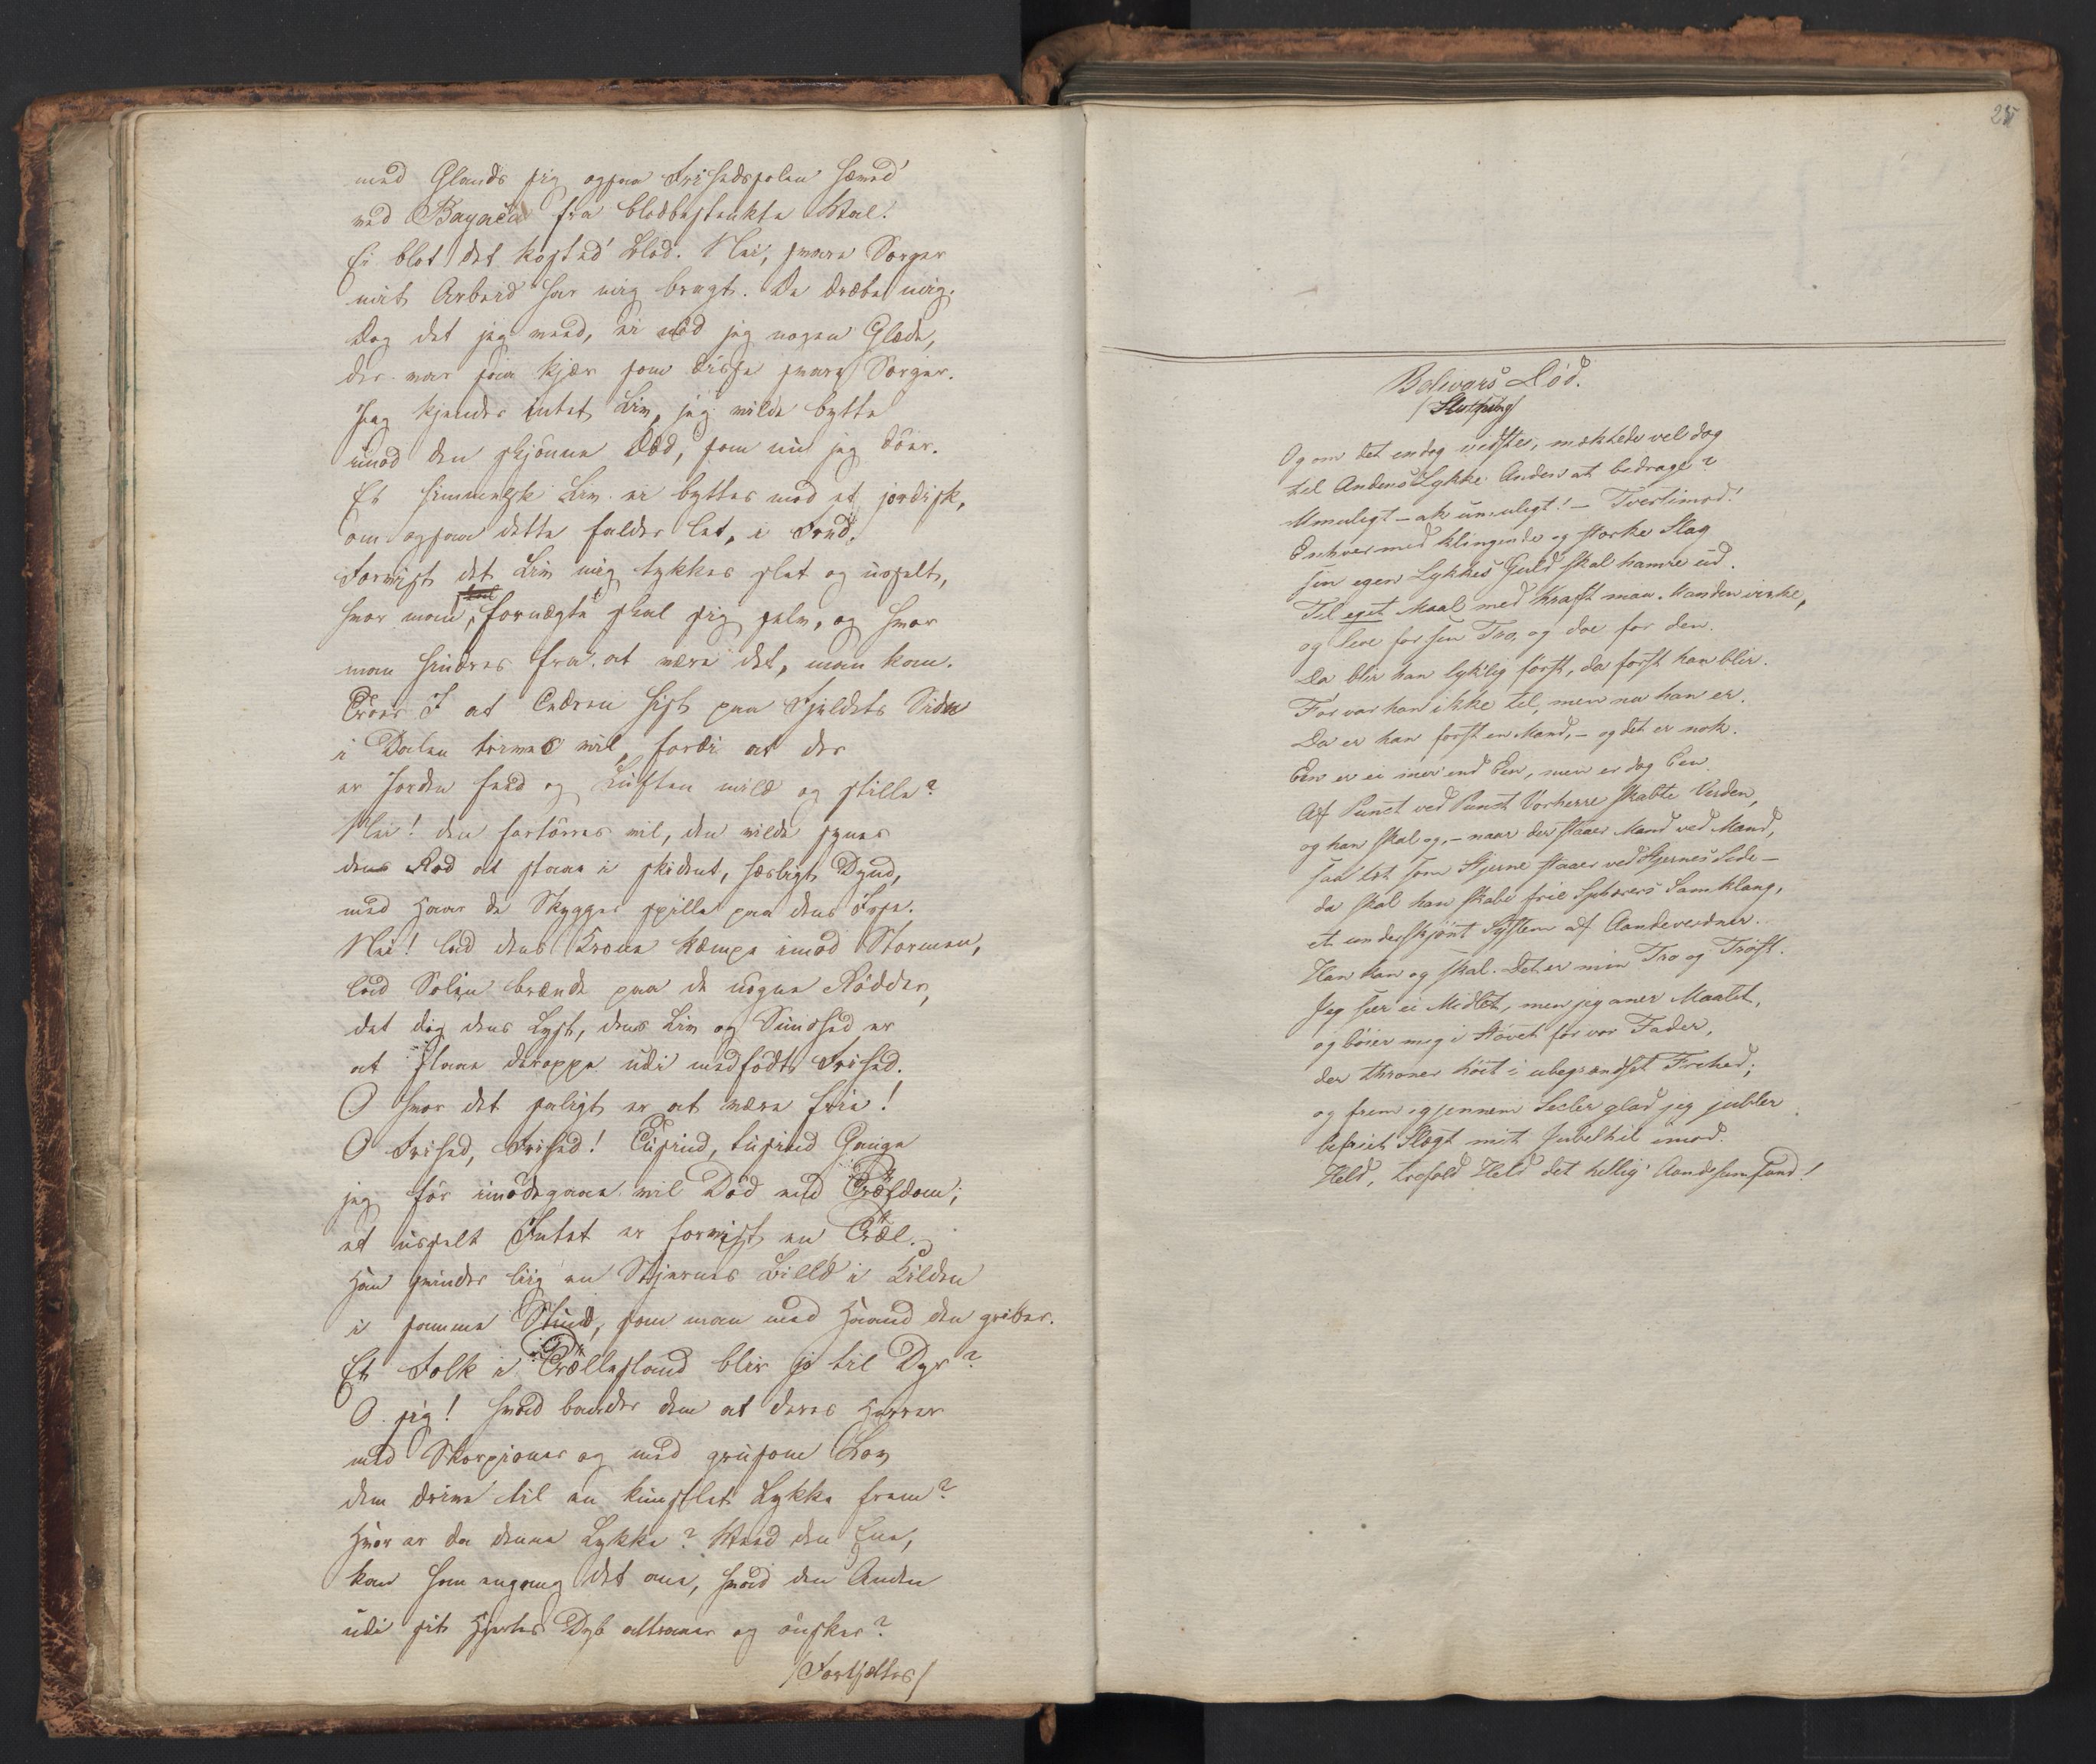 med Glands sig ogsaa Frihedssolen hæved'
ved Bayaca fra blodbestenkte Val.
Ei blot det kosted' Blod. Nei, svare Sorger
mit Arbeid har mig bragt. De dræbe mig.
Dog det jeg veed, ei nöd jeg nogen Glæde,
der var saa kjær som disse svare Sorger.
Jeg kjender intet Liv, jeg vilde bytte
imod den skjönne Död, som nu jeg döer.
Et himmelsk Liv ei byttes mod et jordisk,
om ogsaa dette falder let, i Fred.
Forvist det Liv mig tykkes slet og usselt,
hvor man fornægte skal sig selv, og hvor
man hindres fra at være det, man kan.
Troer I at Cedren hist paa Fjeldets Side
i Dalen trives vil, fordi at der
er Jorden feed og Luften mild og stille?
Nei! den fortörres vil, den vilde synes
dens Rod at staae i skident, hæsligt Dynd,
med Haar de Skygger spille paa dens Isse.
Nei! lad dens Krone kæmpe imod Stormen,
lad Solen brænde paa de nögne Rödder,
det dog dens Lyst, dens Liv og Sundhed er
at staae deroppe udi medfödt Frihed.
O hvor det saligt er at være frie!
O Frihed, Frihed! Tusind, tusind Gange
jeg för imödegaae vil Död end Trældom;
et usselt Intet er forvist en Træl.
Han svinder liig en Stjernes Billed i Kilden
i samme Stund, som man med Haand den griber.
Et Folk i Trællestand blir jo til Dyr?
O sig! hvad baader dem at deres Herrer
med Skorpioner og med grusom Lov
dem drive til en kunstlet Lykke frem?
Hvor er da denne Lykke? Veed den Ene,
kan han engang det ane, hvad den Anden
udi sit Hjertes Dyb attraaer og önsker?
/Fortsættes/
25
Bolivars Död.
/Slutning/
Og om det endog vidstes, mægtede vel dog
til Andens Lykke Anden at bedrage?
Umuligt – ak umuligt! – Tvertimod!
Enhver med klingende og stærke Slag
sin egen Lykkes Guld skal hamre ud.
Til eget Maal med Kraft maa Manden virke,
og leve for sin Tro, og döe for den.
Da blir han lyk'lig först, da först han blir.
För var han ikke til, men nu han er.
Da er han först en Mand, – og det er nok.
Een er ei mer' end Een, men er dog Een.
Af Punct ved Punct Vorherre skabte Verden,
og han skal og, – naar der staaer Mand ved Mand,
saa tæt som Stjerne staaer ved Stjernes Side –
da skal han skabe frie Sphærers Samklang,
et underskjönt System af Aandeverdner.
Han kan og skal. Det er min Tro og Tröst.
Jeg seer ei Midlet, men jeg aner Maalet,
og böier mig i Stövet for vor Fader,
der throner höit i ubegrændset Frihed;
og frem igjennem Secler glad jeg jubler
befriet Slægt mit Jubelhil imod.
Held, trefold Held det hellig' Aandesamfund!